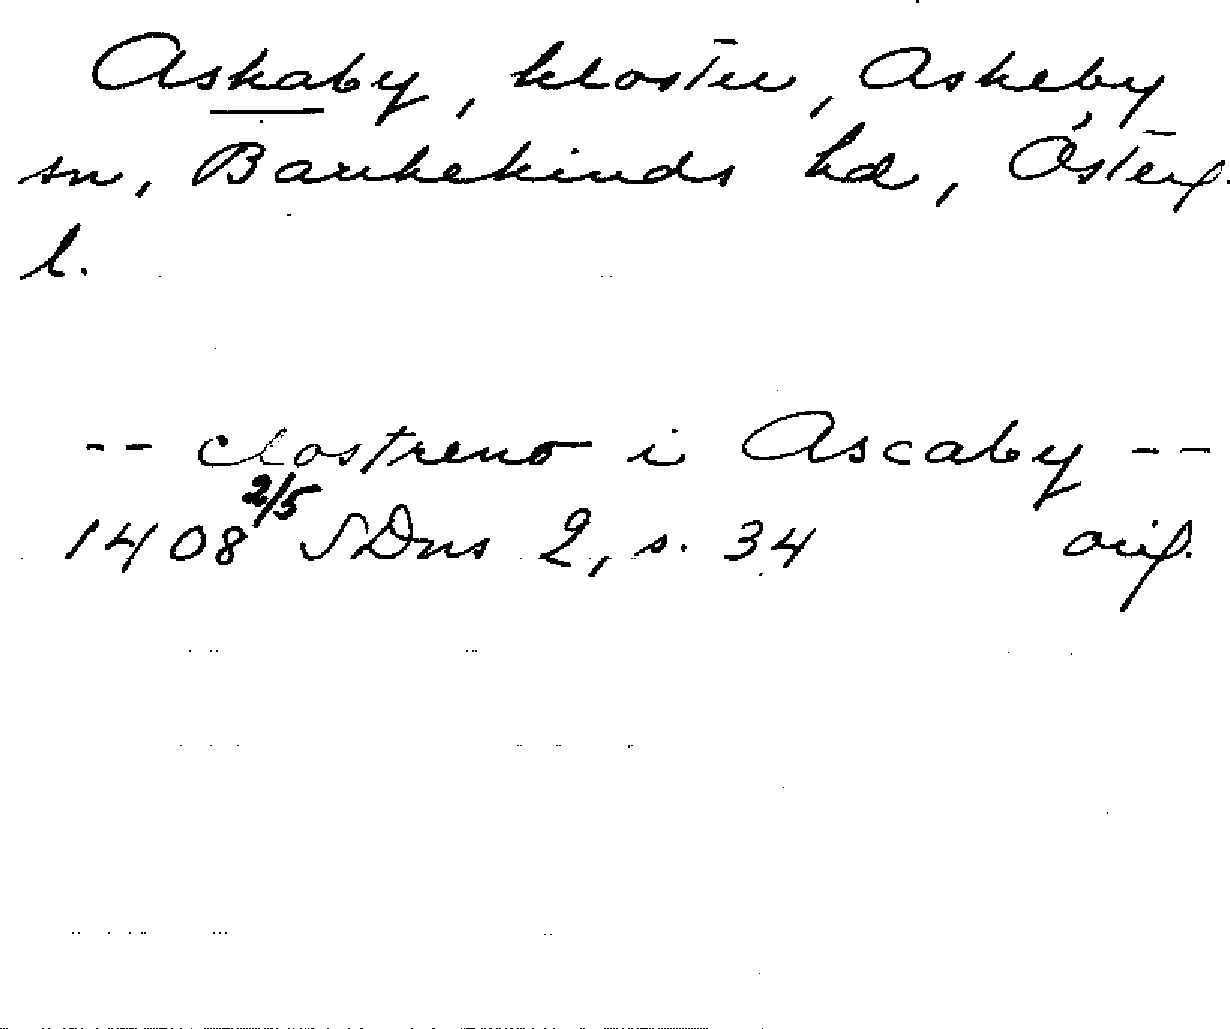 Askaby, kloster, Askeby
sn, Bankekinds hd, Österg.
l.
-- clostreno i Ascaby --
1408 2/5 SDns 2, s. 34 orig.